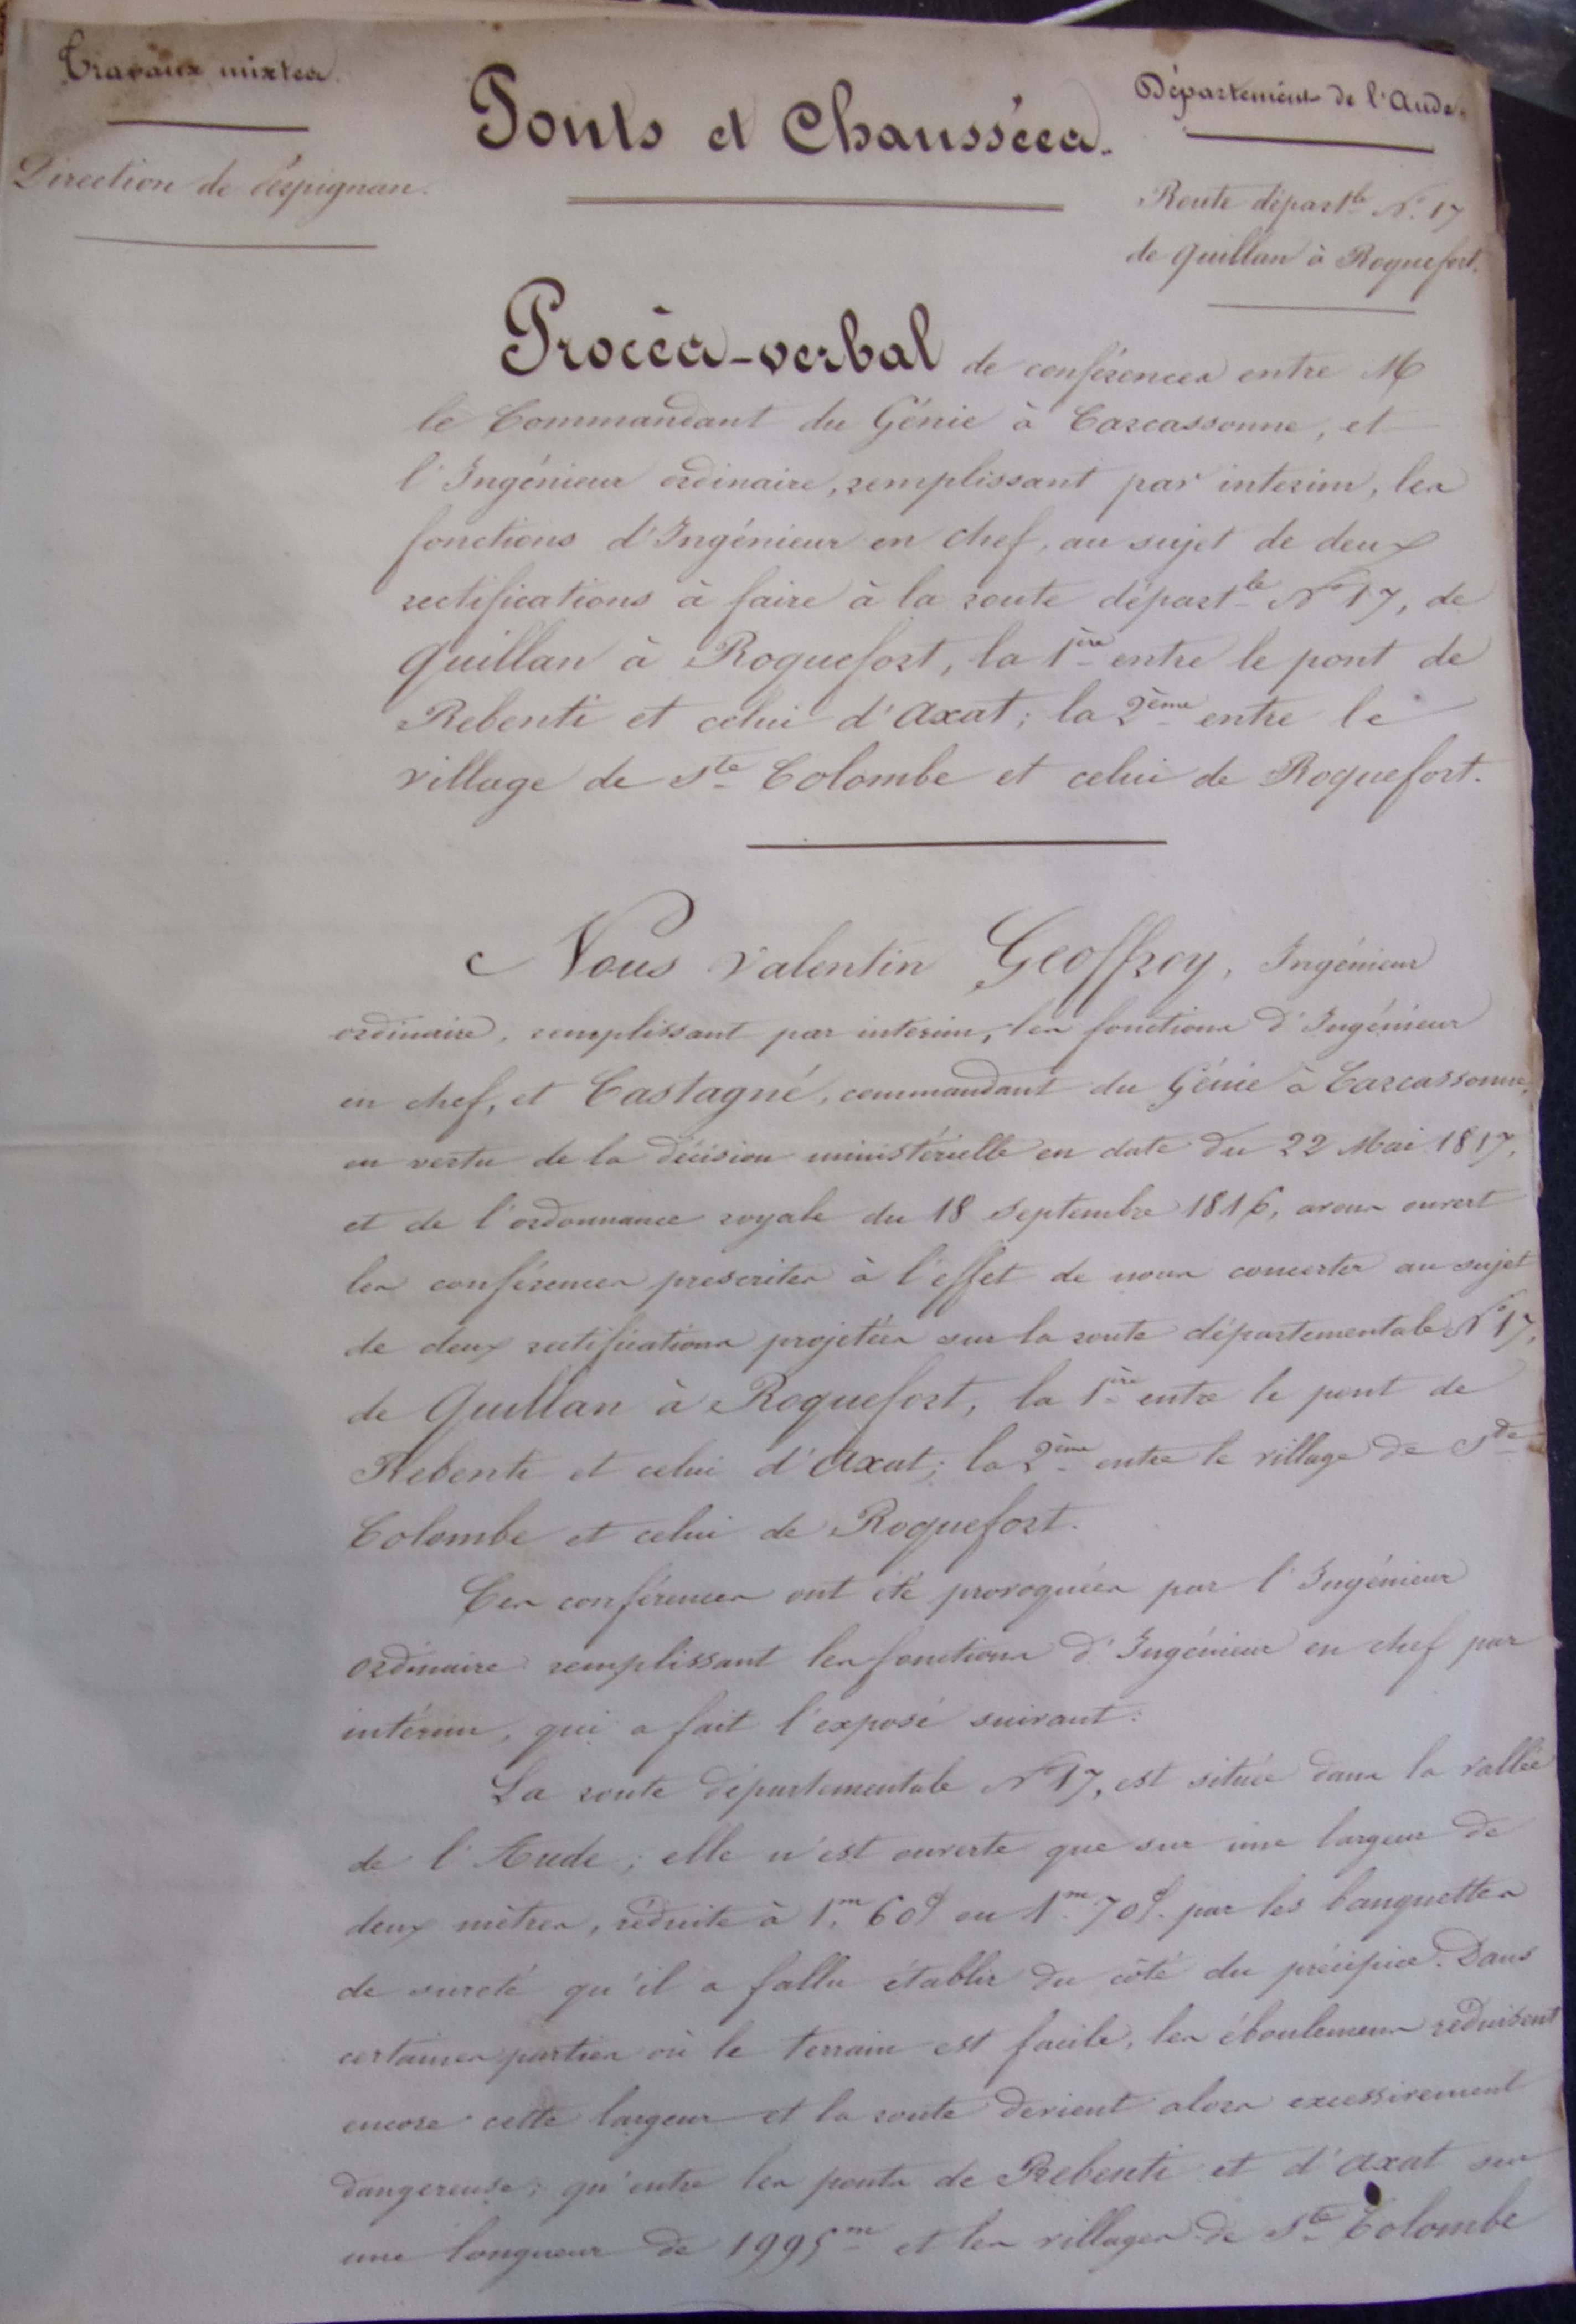 Travaux mixtes.
Direction de Perpignan.
Ponts et Chaussées.
Département de l'Aude.
Route départle No. 17
de Quillan à Roquefort.
Procès-verbal de conférences entre M
le Commandant du Génie à Carcassonne, et
l'Ingénieur ordinaire, remplissant par interim, les
fonctions d'Ingénieur en chef, au sujet de deux
rectifications à faire à la route départle No 17, de
Quillan à Roquefort, la 1ère entre le pont de
Rebenti et celui d'Axat; la 2ème entre le
village de Ste Colombe et celui de Roquefort.
Nous Valentin Geoffroy, Ingénieur
ordinaire, remplissant par intérim, les fonctions d'Ingénieur
en chef, et Castagné, commandant du Génie à Carcassonne,
en vertu de la décision ministérielle en date du 22 Mai 1817,
et de l'ordonnance royale du 18 Septembre 1816, avons ouvert
les conférences prescrites à l'effet de nous concerter au sujet
de deux rectifications projetées sur la route départementale No 17,
de Quillan à Roquefort, la 1ère entre le pont de
Rebenti et celui d'Axat; la 2ème entre le village de Ste
Colombe et celui de Roquefort.
Ces conférences ont été provoquées par l'Ingénieur
ordinaire remplissant les fonctions d'Ingénieur en chef par
intérim, qui a fait l'exposé suivant:
La route départementale No 17, est située dans la vallée
de l'Aude; elle n'est ouverte que sur une largeur de
deux mètres, réduite à 1m. 60c ou 1m. 70c. par les banquettes
de sureté qu'il a fallu établir du côté du précipice. Dans
certaines parties où le terrain est facile, les éboulemens réduisent
encore cette largeur et la route devient alors excessivement
dangereuse; qu'entre les ponts de Rebenti et d'Axat sur
une longueur de 1995m et les villages de Ste Colombe